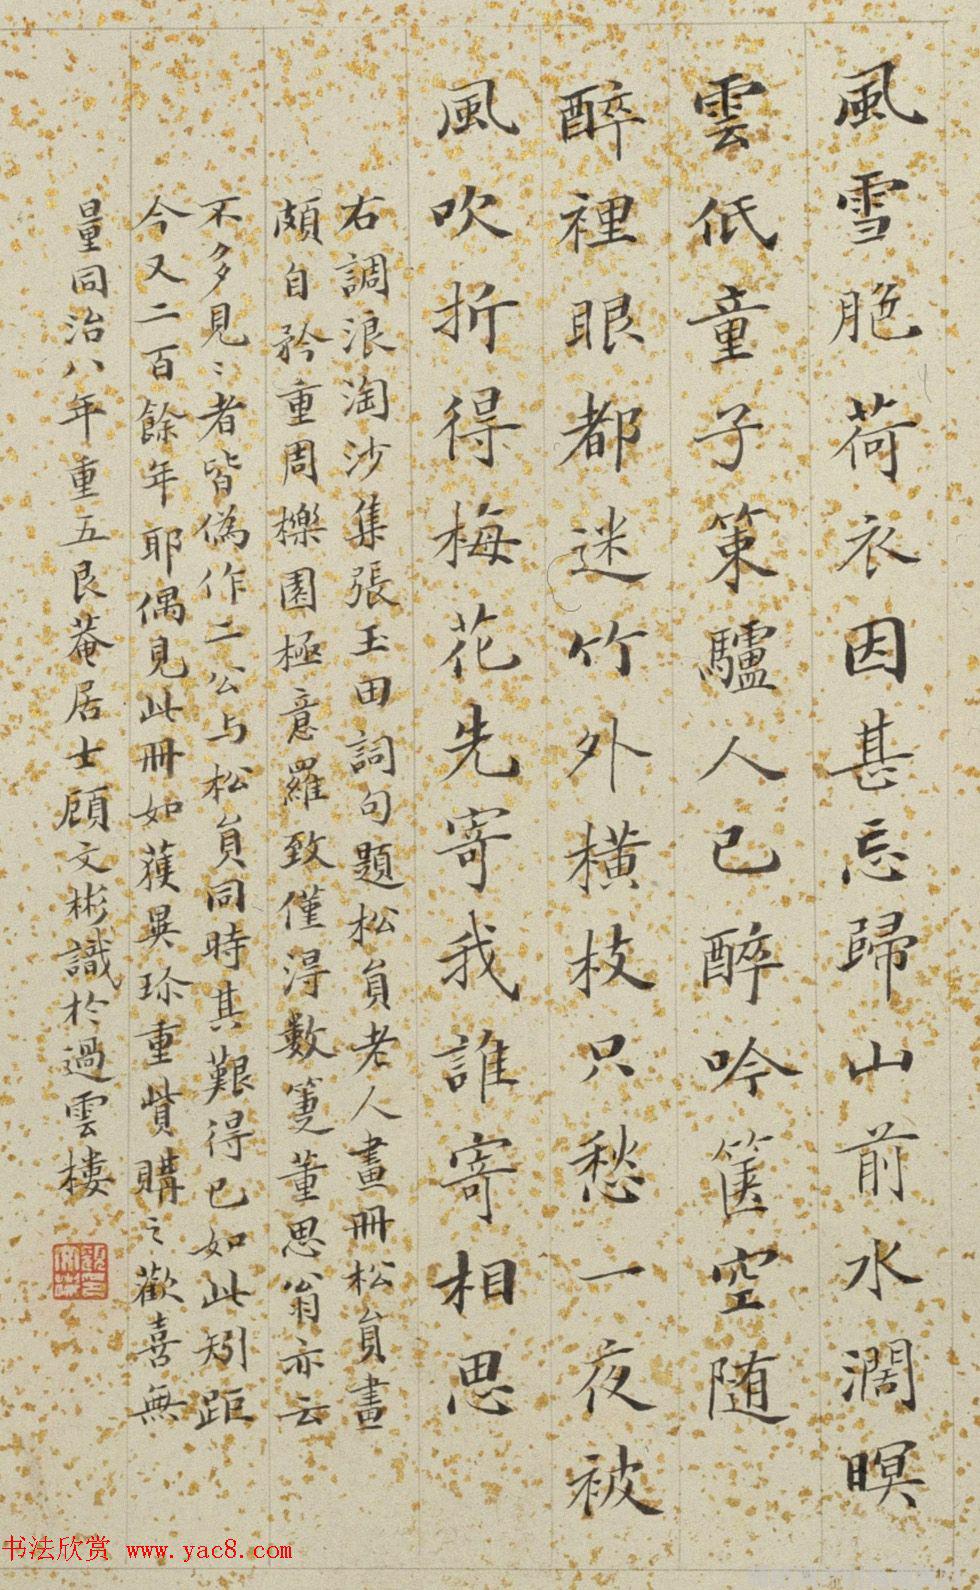 風雪脃荷衣因甚忘歸山前水濶暝
雲低童子策驢人已醉吟篋空随
醉裡眼都迷竹外橫枝只愁一夜被
風吹折得梅花先寄我誰寄相思
右調浪淘沙集張玉田詞句題松員老人畫冊松員畫
頗自矜重周櫟園極意羅致僅淂數箑董思翁亦云
不多見〻者皆偽作二公与松員同時其艱得已如此矧距
今又二百餘年耶偶見此冊如獲異珎重貲購之歡喜無
量同治八年重五艮菴居士顧文彬識於過雲樓
书法欣赏 www.yac8.com